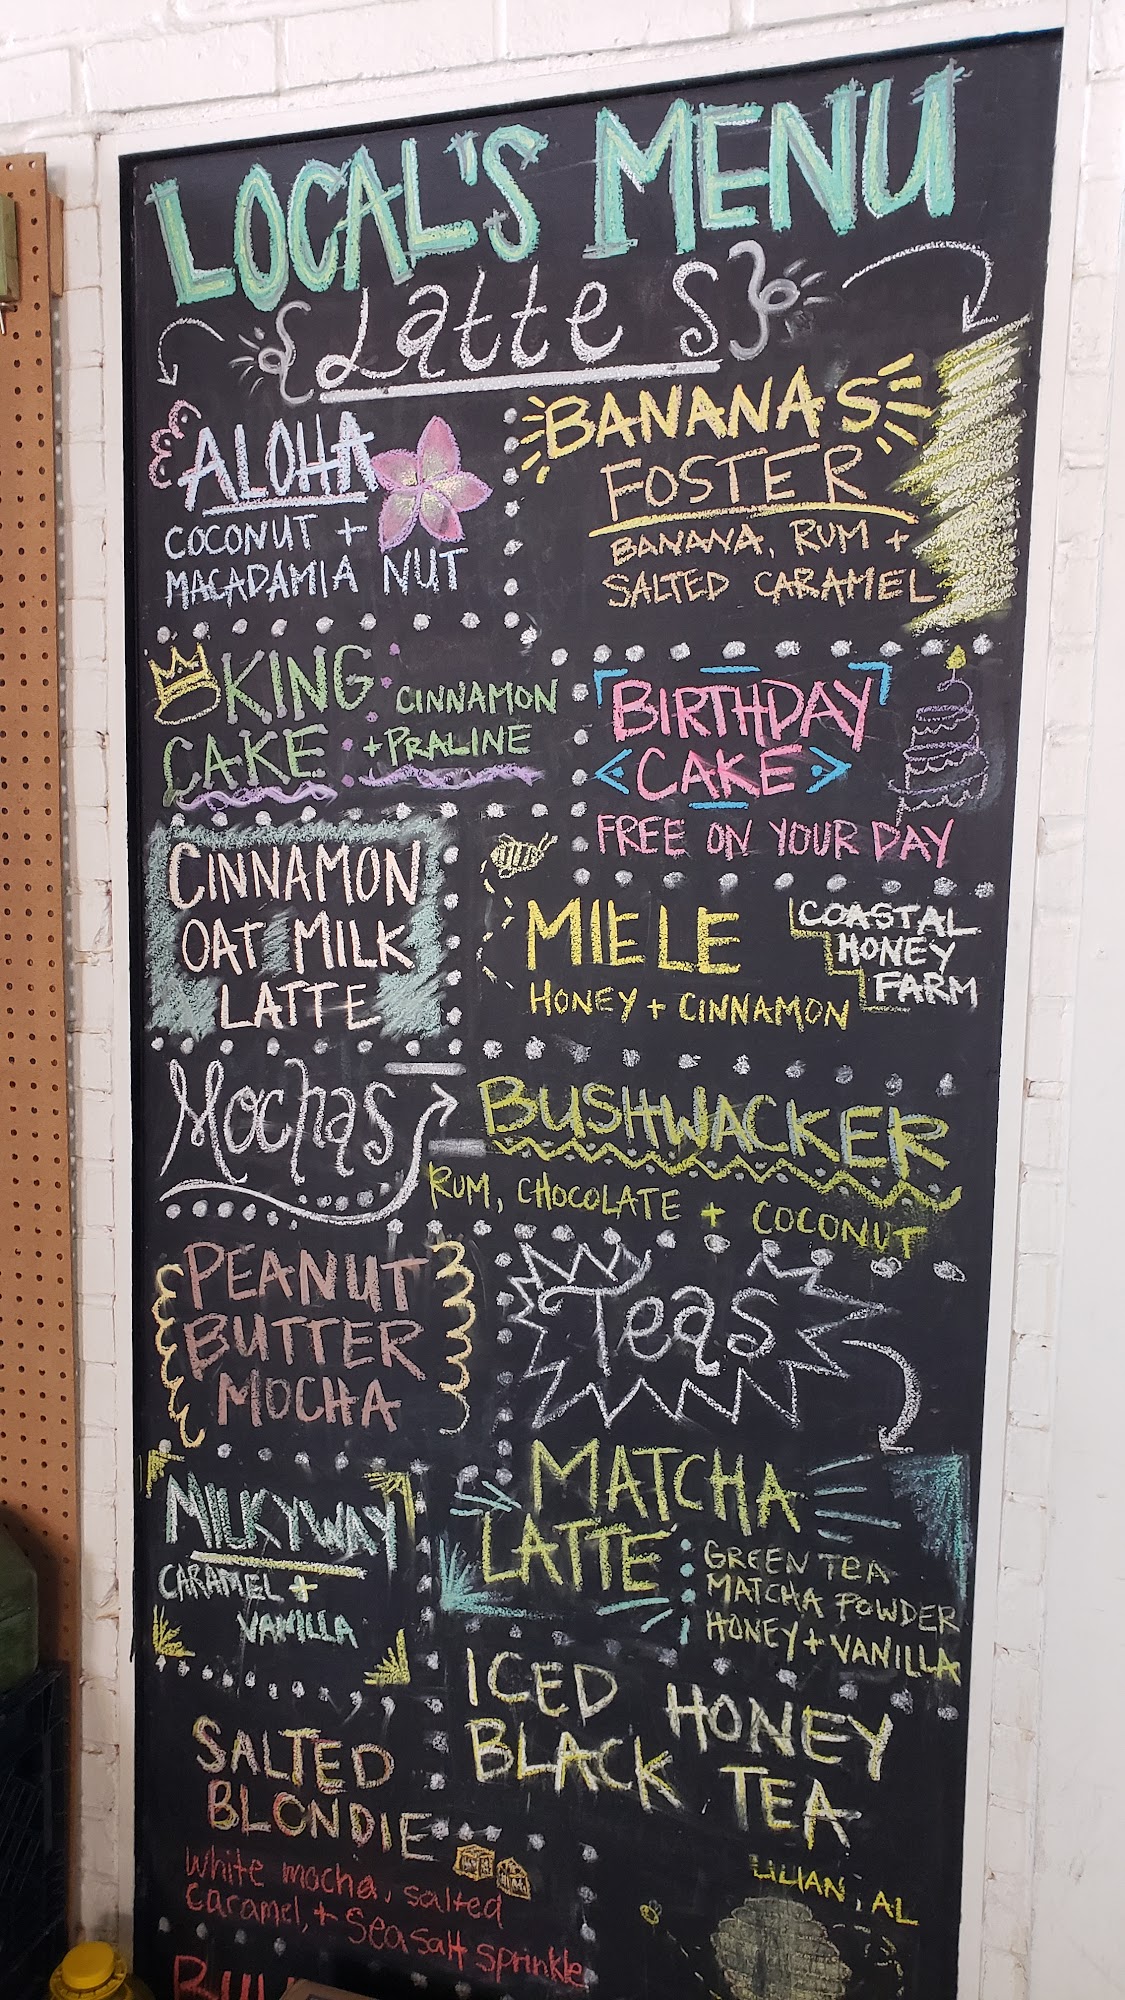 LOCAL'S MENU
Latte S
ALOHA
COCONUT +
MACADAMIA NUT
BANANAS
FOSTER
BANANA, RUM +
SALTED CARAMEL
KING
CAKE
CINNAMON
+ PRALINE
BIRTHDAY
CAKE
FREE ON YOUR DAY
CINNAMON
OAT MILK
LATTE
MIELE
HONEY + CINNAMON
COASTAL
HONEY
FARM
Mochas
BUSHWACKER
RUM, CHOCOLATE + COCONUT
PEANUT
BUTTER
MOCHA
Teas
MILKYWAY
CARAMEL +
VANILLA
MATCHA
LATTE
GREEN TEA
MATCHA POWDER
HONEY + VANILLA
SALTED
BLONDIE
white mocha, salted
caramel, + Sea salt sprinkle
ICED HONEY
BLACK TEA
LILIAN, AL